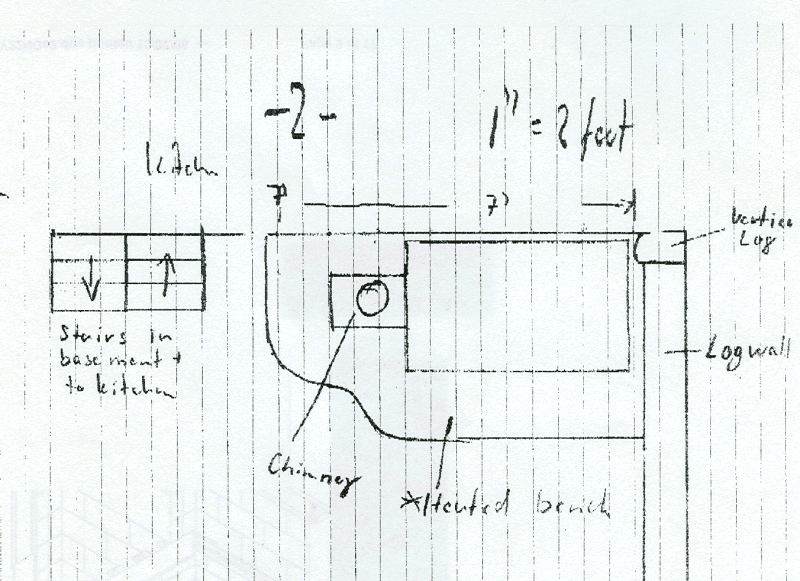 -2-
1" = 2 feet
kitchn
7'
7'
vertica
Log
Stairs in
basement +
to kitchen
Log wall
Chimney
*Heated bench